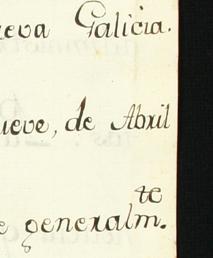 ueva Galicia.
ueve, de Abril
e generalm.te